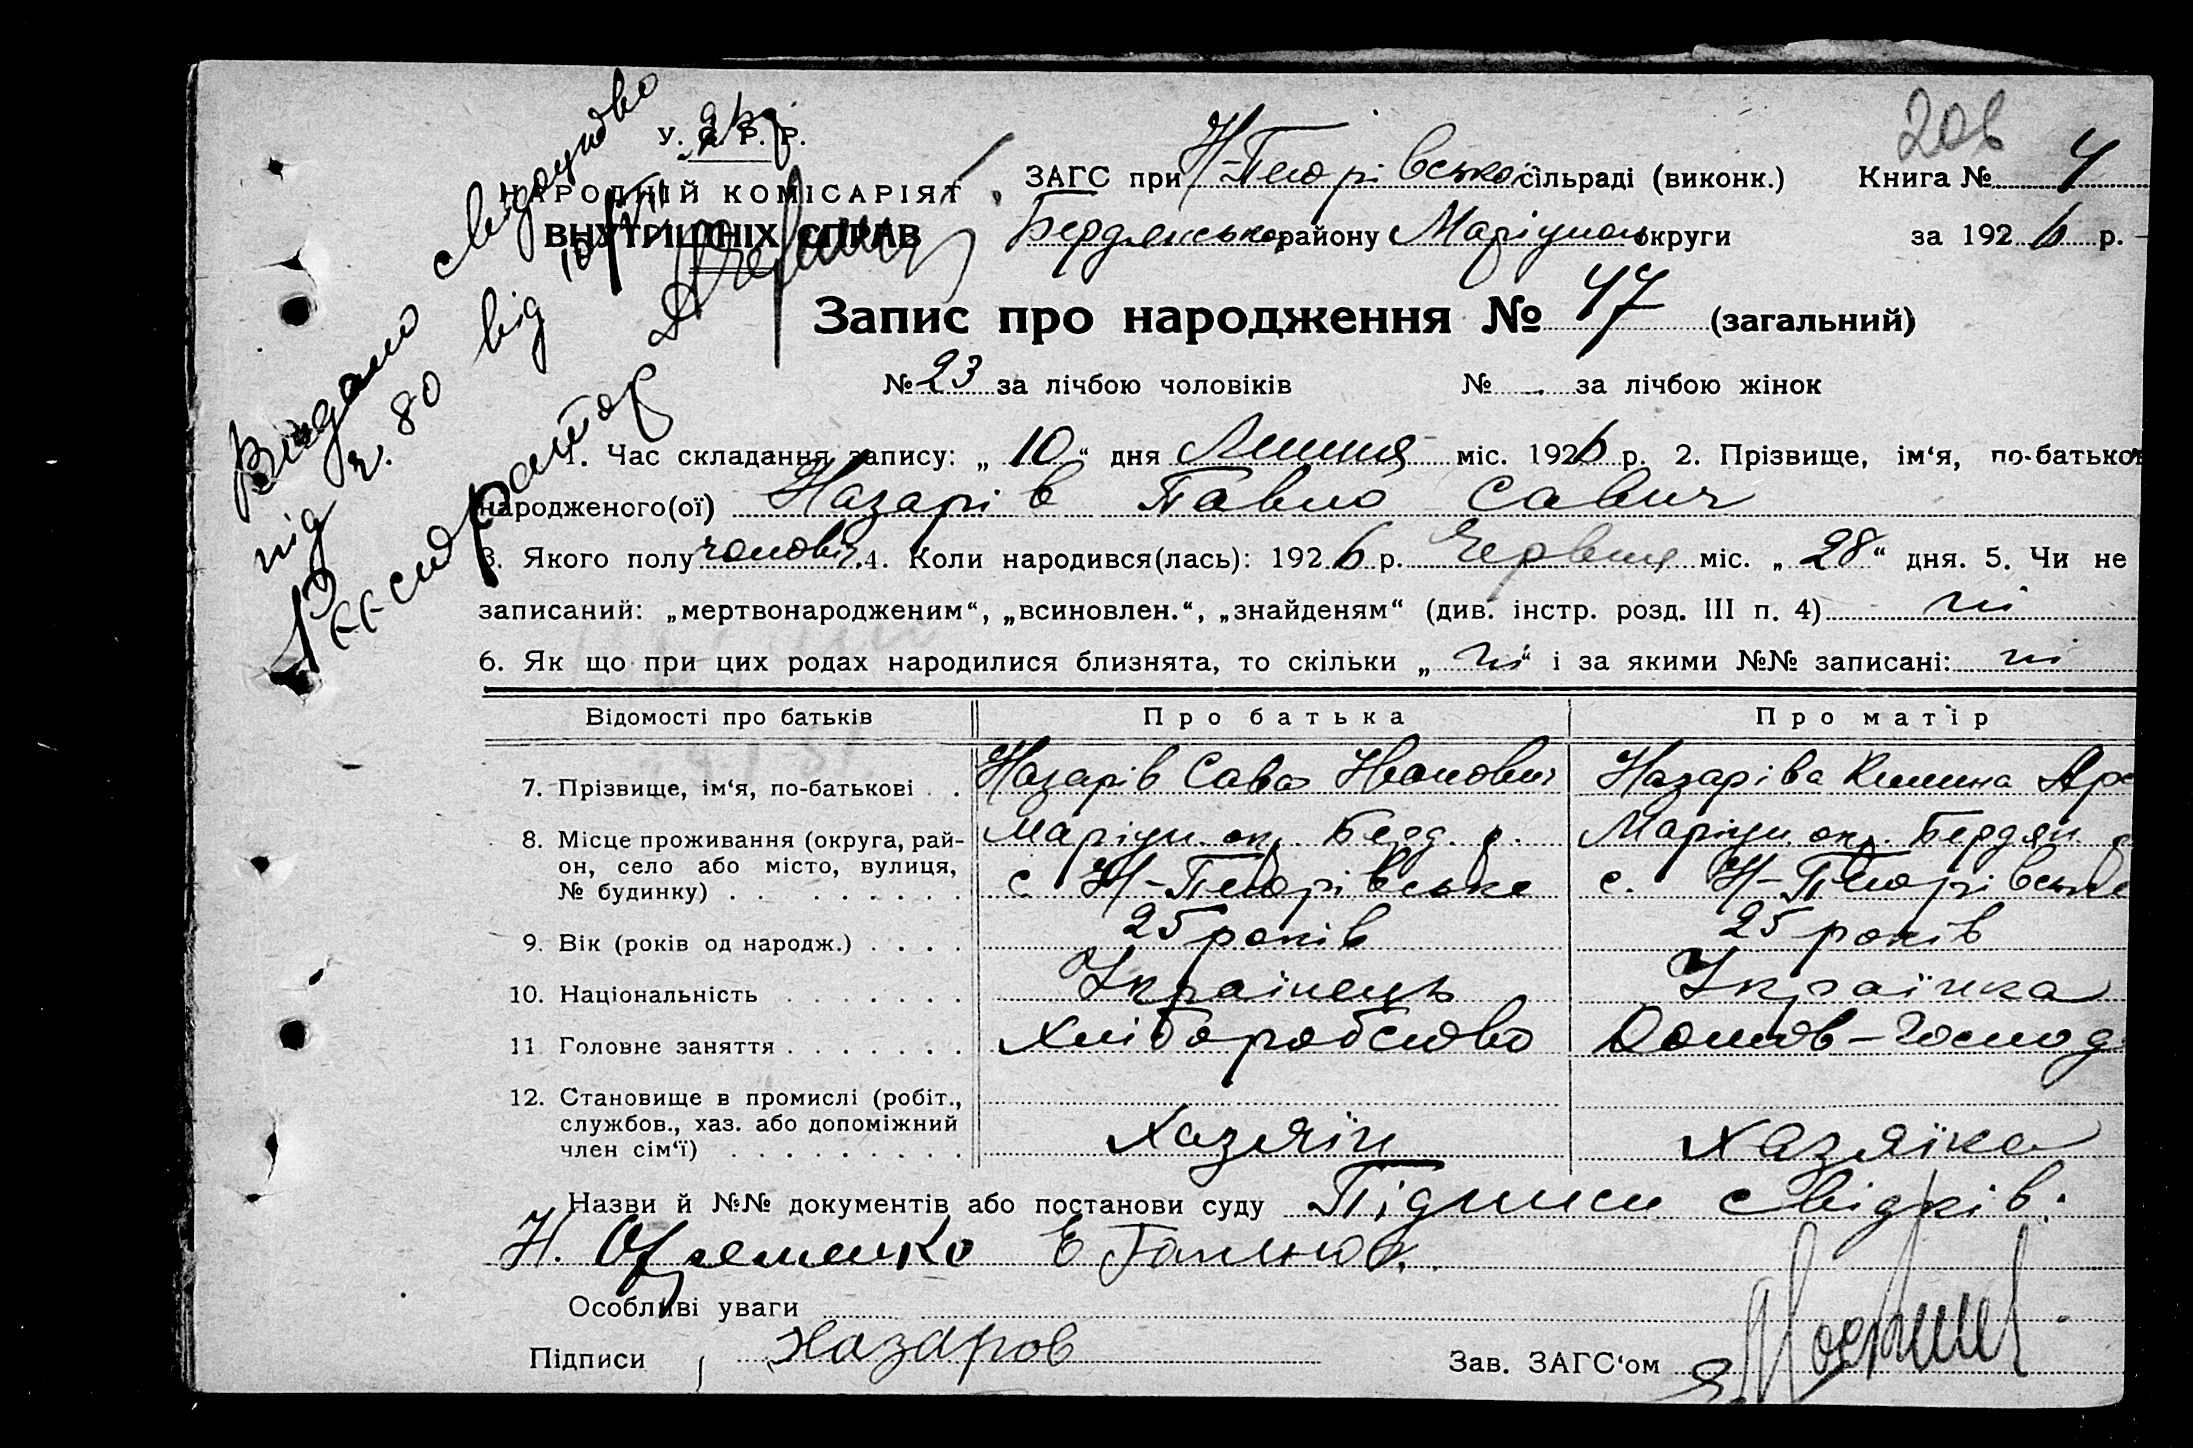 У. С. Р. Р.
НАРОДНІЙ КОМІСАРІЯТ
ВНУТРІШНІХ СПРАВ
206
ЗАГС при сільраді (виконк.) Книга № 4
Бердянськ району Маріупол округи за 1926 р.
Запис про народження № 47 (загальний)
№ 23 за лічбою чоловіків № за лічбою жінок
Видано свідоцтво
під ч. 80 від
1. Час складання запису: „10“ дня Липня міс. 1926 р. 2. Прізвище, ім‘я, по-батьков
народженого(ої) Назарів Павло Савич
3. Якого полу чоловіч. 4. Коли народився(лась): 1926 р. Червня міс. „28“ дня. 5. Чи не
записаний: „мертвонародженим“, „всиновлен.“, „знайденям“ (див. інстр. розд. III п. 4) ні
6. Як що при цих родах народилися близнята, то скільки „ні“ і за якими №№ записані: ні
Відомості про батьків Про батька Про матір
7. Прізвище, ім‘я, по-батькові . . Назарів Сава Іванович Назаріва Килина Ар
8. Місце проживання (округа, рай- Маріуп. ок. Берд. р. Маріуп. ок. Бердян.
он, село або місто, вулиця,
№ будинку) с. с.
9. Вік (років од народж.) . . . . 25 років 25 років
10. Національність Українець Українка
11 Головне заняття Хліборобство Домов-господ
12. Становище в промислі (робіт.,
службов., хаз. або допоміжний
член сім‘ї) Хазяїн Хазяїка
Назви й №№ документів або постанови суду Підписи свідків:
Особливі уваги
Підписи Назаров Зав. ЗАГС‘ом